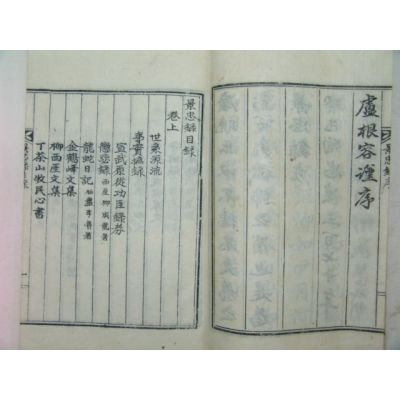 盧根容謹序
景忠錄序
景忠錄目錄
卷上
世系源流
事實摭錄
宣武原從功臣錄券
懲毖錄 西厓柳成龍著
龍蛇日記 李魯著
金鶴峰文集
柳西厓文集
丁茶山牧民心書